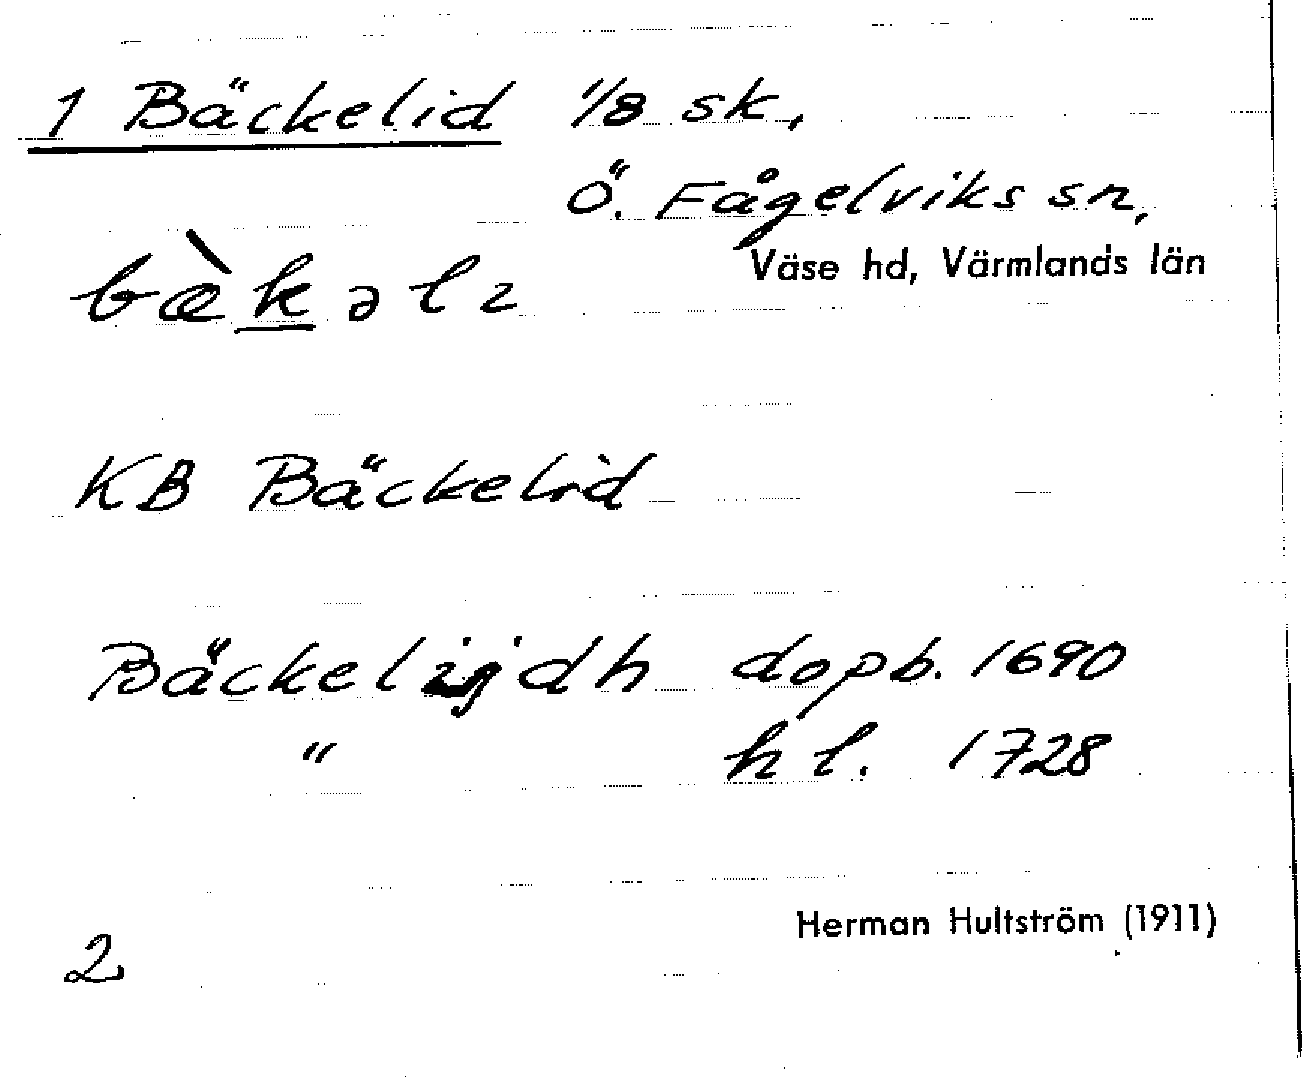 1 Bäckelid 1/8 sk,
Ö. Fågelviks sn,
Väse hd, Värmlands län
bæ̀kəlɩ
KB Bäckelid
Bäckelijdh dopb. 1690
" hl. 1728
Herman Hultström (1911)
2